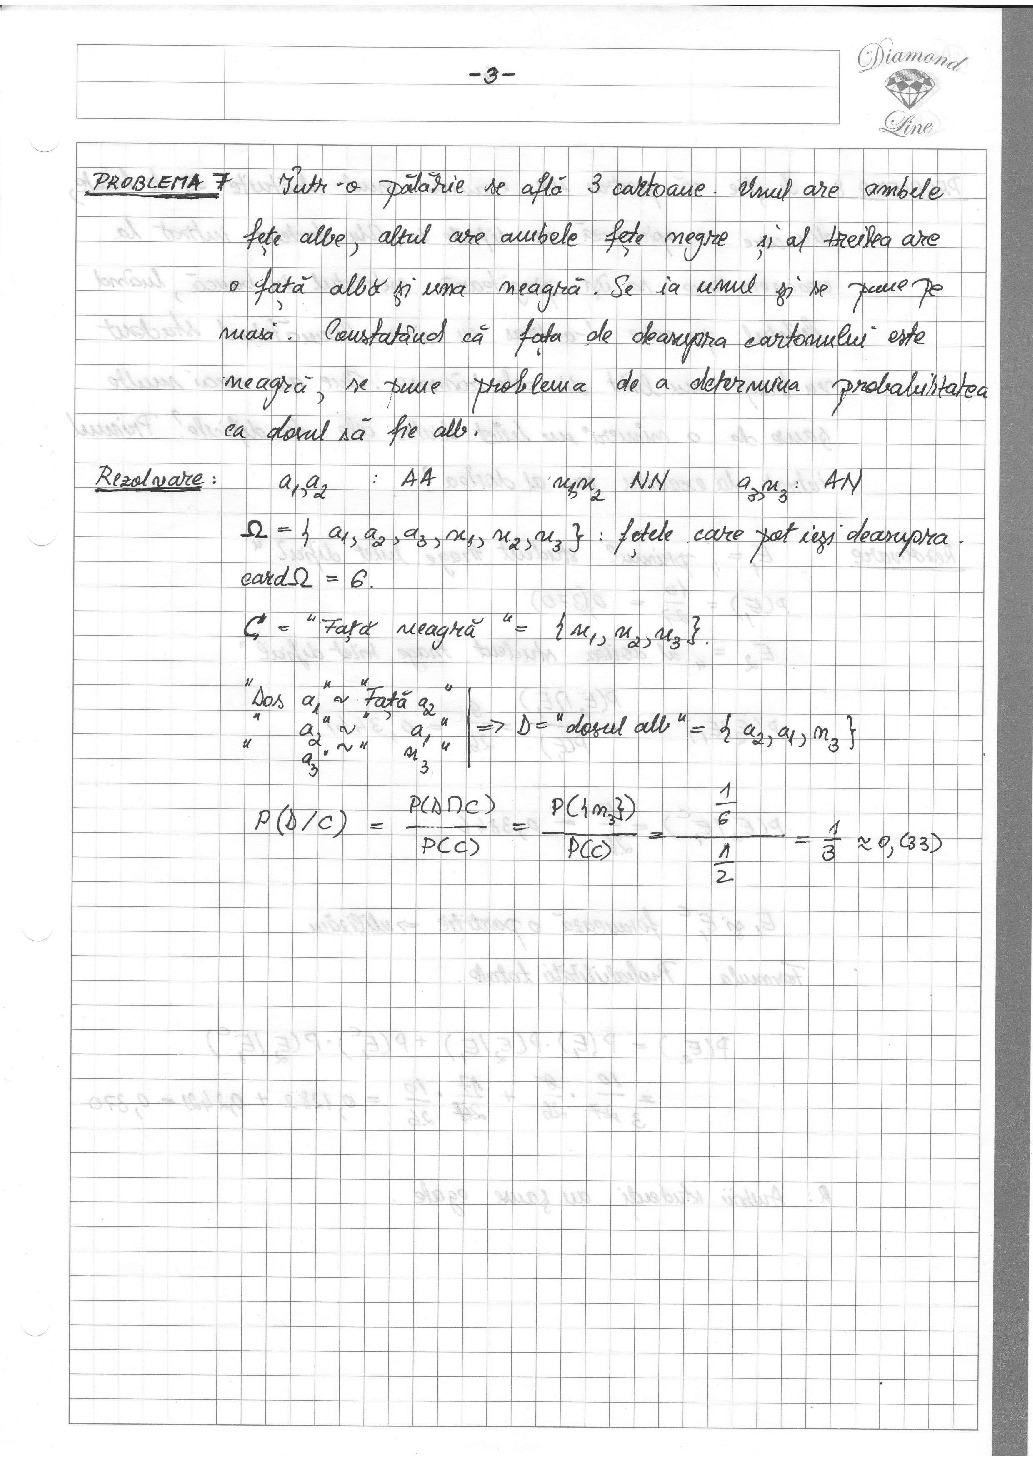 -3-
Diamond
Line
PROBLEMA 7 Într-o pălărie se află 3 cartoane. Unul are ambele
fețe albe, altul are ambele fețe negre și al treilea are
o față albă și una neagră. Se ia unul și se pune pe
masă. Constatând că fața de deasupra cartonului este
neagră, se pune problema de a determina probabilitatea
ca dosul să fie alb.
Rezolvare: a₁,a₂ : AA n₁,n₂ NN a₃,n₃: AN
Ω = { a₁, a₂, a₃, n₁, n₂, n₃ } : fețele care pot ieși deasupra.
cardΩ = 6.
C = "Față neagră" = {n₁, n₂, n₃}.
"Dos a₁" ~ "Față a₂"
" a₂" ~ " a₁" => D = "dosul alb" = { a₂, a₁, n₃ }
" a₃" ~ " n₃"
P(D/C) = P(D∩C)/P(C) = P({n₃})/P(C) = (1/6)/(1/2) = 1/3 ≈ 0,(33)